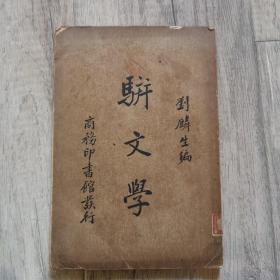 劉麟生編
駢文學
商務印書館發行